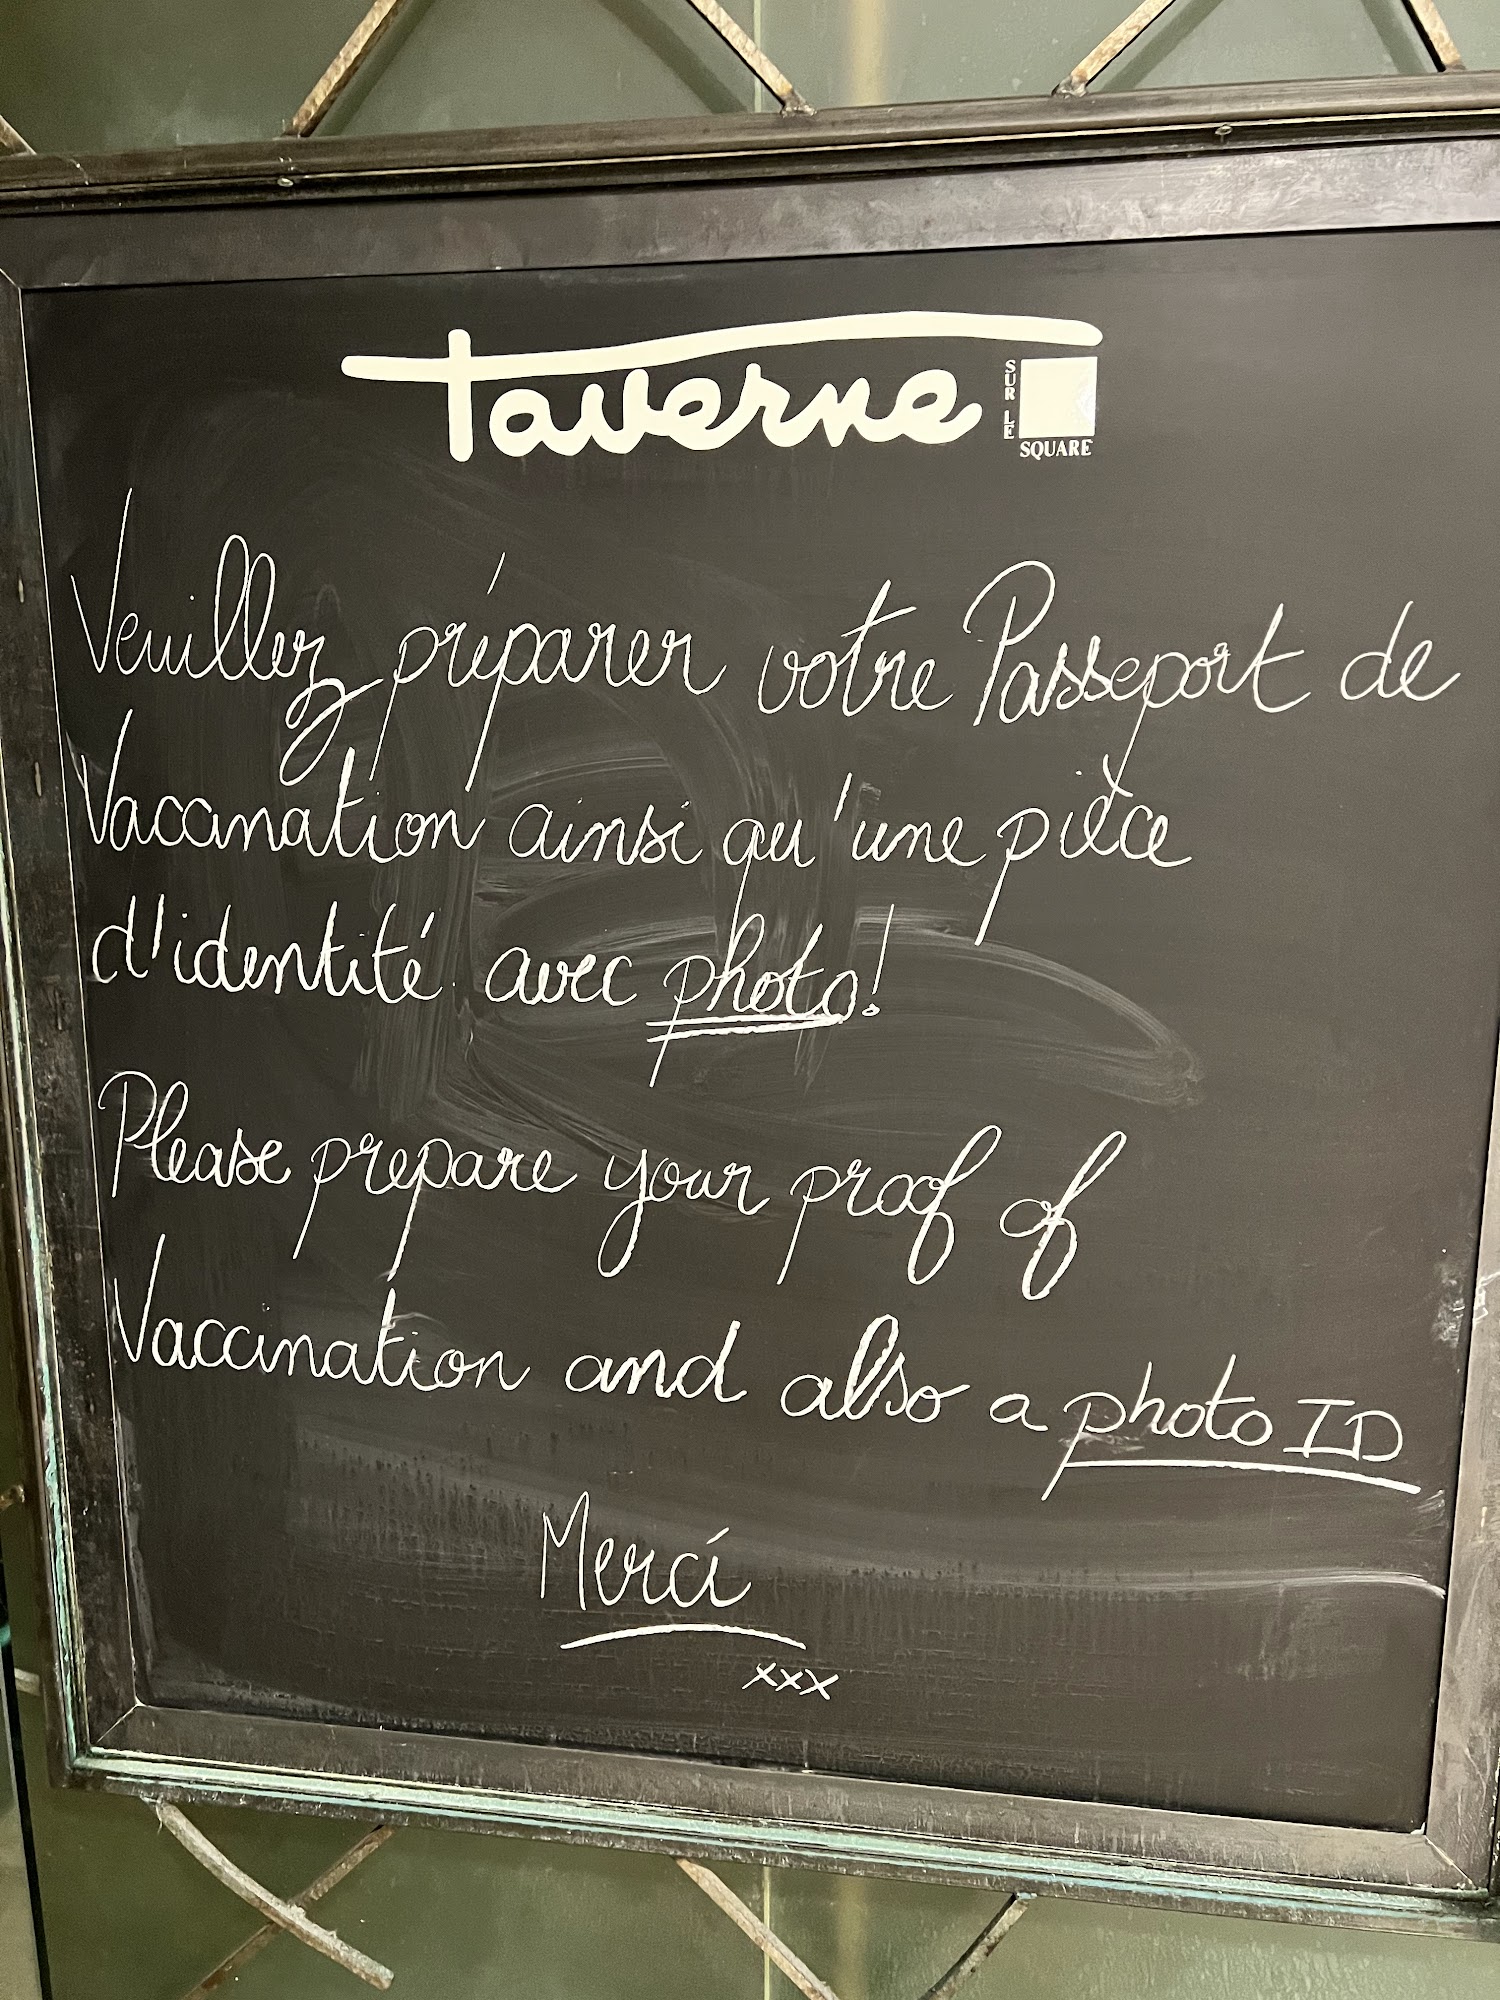 Taverne SUR LE SQUARE
Veuillez préparer votre Passeport de
Vaccination ainsi qu'une pièce
d'identité avec photo!
Please prepare your proof of
Vaccination and also a photo ID
Merci
xxx